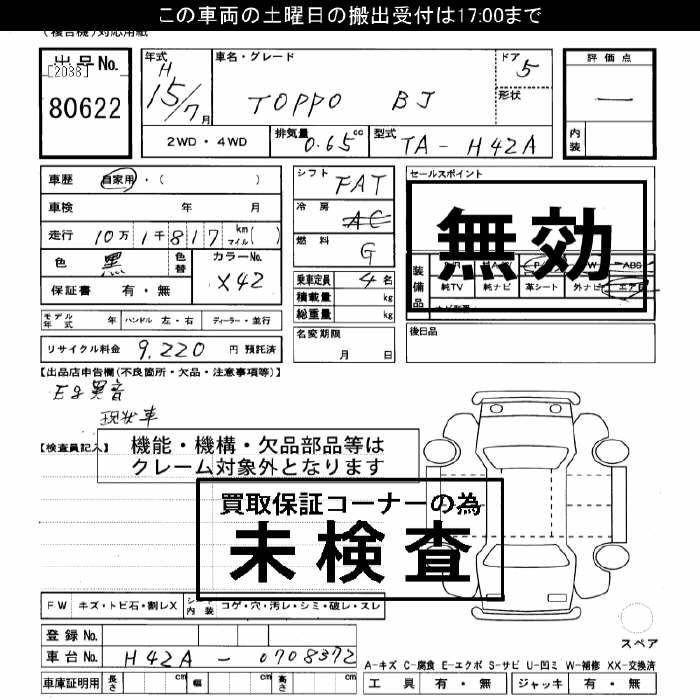 この車両の土曜日の搬出受付は17:00まで
(複合機)対応用紙
出品No.
[2038]
80622
年式
H
15/7月
車名・グレード
TOPPO BJ
ドア
5
形状
評価点
—
内装
2WD・4WD
排気量
0.65cc
型式
TA-H42A
車歴 自家用・( )
車検 年 月
走行 10万1千817 km マイル( )
色 黒
色替
カラーNo.
X42
保証書 有・無
シフト
FAT
冷房
AC
燃料
G
乗車定員 4名
積載量 kg
総重量 kg
セールスポイント
無効
装備品
ABS
純TV 純ナビ 革シート 外ナビ エアB
モデル年式 年 ハンドル 左・右 ディーラー・並行
名変期限
月 日
後日品
リサイクル料金 9,220 円 預託済
【出品店申告欄(不良箇所・欠品・注意事項等)】
Eg異音
現状車
【検査員記入】
機能・機構・欠品部品等は
クレーム対象外となります
買取保証コーナーの為
未検査
FW キズ・トビ石・割レX
シート内装 コゲ・穴・汚レ・シミ・破レ・スレ
スペア
登録No.
車台No. H42A-0708372
A-キズ C-腐食 E-エクボ S-サビ U-凹ミ W-補修 XX-交換済
車庫証明用 長さ cm 幅 cm 高さ cm
工具 有・無 ジャッキ 有・無